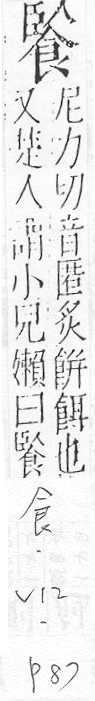 䬥
尼力切音匿炙餠餌也
又楚人謂小兒嬾曰䬥
食.
V12
-
p87